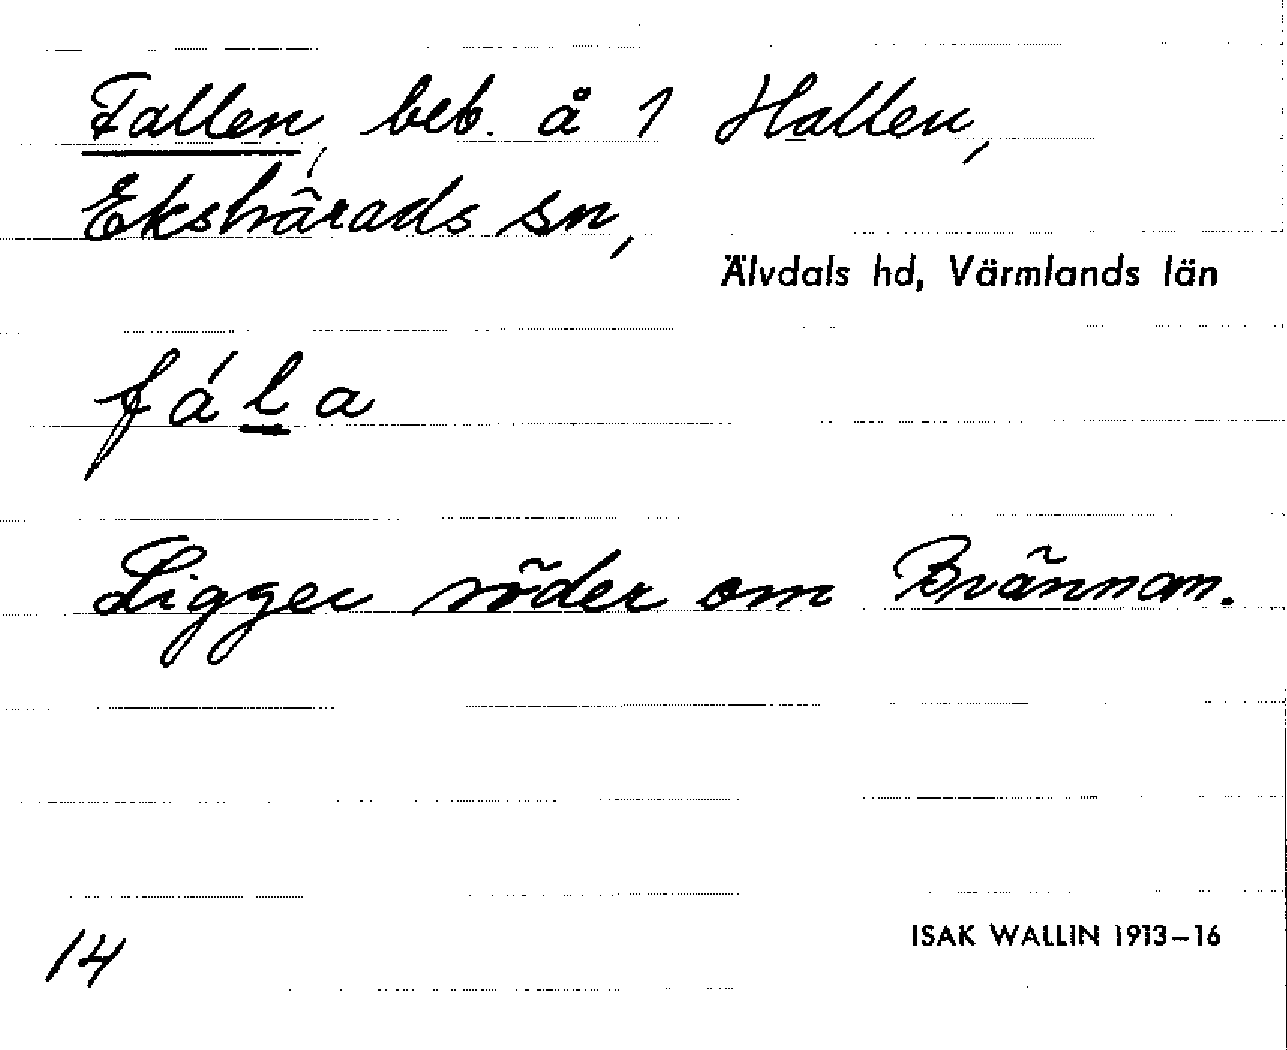 Fallen, beb. å 1 Hallen,
Ekshärads sn,
Älvdals hd, Värmlands län
fála
Ligger söder om Brännan.
14
ISAK WALLIN 1913–16